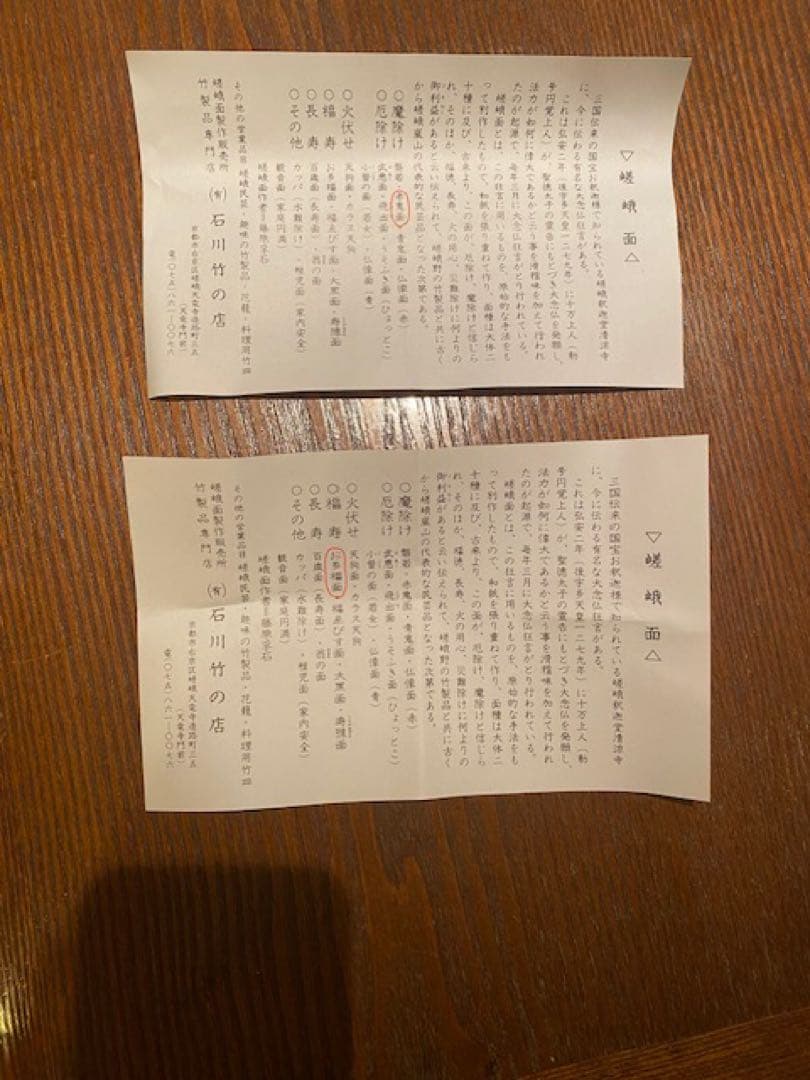 ▽嵯峨面△
三国伝来の国宝お釈迦様で知られている嵯峨釈迦堂清凉寺
に、今に伝わる有名な大念仏狂言がある。
これは弘安二年(後宇多天皇一二七九年)に十万上人(勅
号円覚上人)が、聖徳太子の霊告にもとづき大念仏を発願し、
法力が如何に偉大であるかと云う事を滑稽味を加えて行われ
たのが起源で、毎年三月に大念仏狂言がとり行われている。
嵯峨面とは、この狂言に用いるものを、原始的な手法をも
って制作したもので、和紙を張り重ねて作り、面種は大体二
十種に及び、古来より、この面が、厄除け、魔除けと信じら
れ、そのほか、福徳、長寿、火の用心、災難除けに何よりの
御利益があると云い伝えられて、嵯峨野の竹製品と共に古く
から嵯峨嵐山の代表的な民芸品となった次第である。
○魔除け 般若・赤鬼面・青鬼面・仏像面(赤)
○厄除け 武悪面・登出面・うそふき面(ひょっとこ)
小督の面(若女)・仏像面(青)
○火伏せ 天狗面・カラス天狗
○福寿 お多福面・福ゑびす面・大黒面・寿雅面
○長寿 百歳面(長寿面)・翁の面
○その他 カッパ(水難除け)・稚児面(家内安全)
観音面(家庭円満)
嵯峨面作者=藤原孚石
その他の営業品目 嵯峨民芸・趣味の竹製品・花籠・料理用竹皿
嵯峨面製作販売所
竹製品専門店
(有)石川竹の店
京都市右京区嵯峨天竜寺造路町三五
(天竜寺門前)
電(〇七五)八六一―〇〇七六
▽嵯峨面△
三国伝来の国宝お釈迦様で知られている嵯峨釈迦堂清凉寺
に、今に伝わる有名な大念仏狂言がある。
これは弘安二年(後宇多天皇一二七九年)に十万上人(勅
号円覚上人)が、聖徳太子の霊告にもとづき大念仏を発願し、
法力が如何に偉大であるかと云う事を滑稽味を加えて行われ
たのが起源で、毎年三月に大念仏狂言がとり行われている。
嵯峨面とは、この狂言に用いるものを、原始的な手法をも
って制作したもので、和紙を張り重ねて作り、面種は大体二
十種に及び、古来より、この面が、厄除け、魔除けと信じら
れ、そのほか、福徳、長寿、火の用心、災難除けに何よりの
御利益があると云い伝えられて、嵯峨野の竹製品と共に古く
から嵯峨嵐山の代表的な民芸品となった次第である。
○魔除け 般若・赤鬼面・青鬼面・仏像面(赤)
○厄除け 武悪面・登出面・うそふき面(ひょっとこ)
小督の面(若女)・仏像面(青)
○火伏せ 天狗面・カラス天狗
○福寿 お多福面・福ゑびす面・大黒面・寿雅面
○長寿 百歳面(長寿面)・翁の面
○その他 カッパ(水難除け)・稚児面(家内安全)
観音面(家庭円満)
嵯峨面作者=藤原孚石
その他の営業品目 嵯峨民芸・趣味の竹製品・花籠・料理用竹皿
嵯峨面製作販売所
竹製品専門店
(有)石川竹の店
京都市右京区嵯峨天竜寺造路町三五
(天竜寺門前)
電(〇七五)八六一―〇〇七六